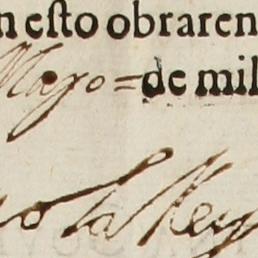 n esto obraren
Mayo = de mil
yo la Rey